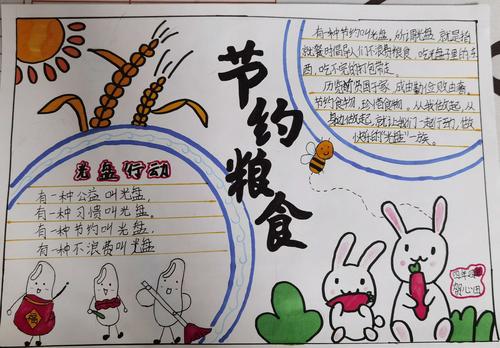 节约粮食
光盘行动
有一种公益叫光盘,
有一种习惯叫光盘。
有一种节约叫光盘,
有一种不浪费叫光盘
有一种节约叫光盘,所谓光盘 就是指
就餐时倡导人们不浪费粮食 吃光盘子里的东
西,吃不完的打包带走。
历览前贤国于家,成由勤俭败由奢。
节约食物,珍惜食物。从我做起,从
身边做起,就让我们一起行动,做
快乐的"光盘"一族。
四年级